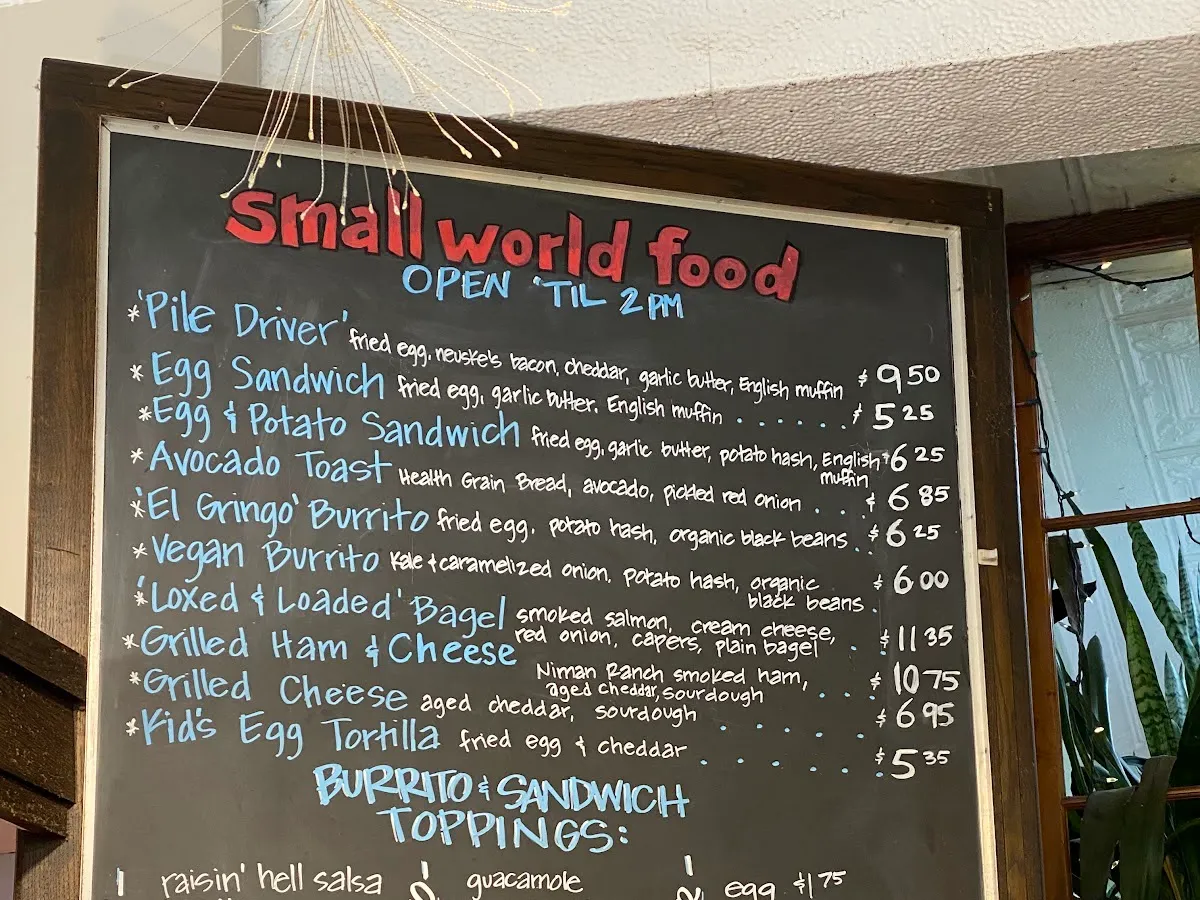 small world food
OPEN 'TIL 2 PM
* 'Pile Driver' fried egg, neuske's bacon, cheddar, garlic butter, English muffin $950
* Egg Sandwich fried egg, garlic butter. English muffin . . . . . . $525
* Egg & Potato Sandwich fried egg, garlic butter, potato hash, English $625
muffin
* Avocado Toast Health Grain Bread, avocado, pickled red onion . . . $685
* 'El Gringo' Burrito fried egg, potato hash, organic black beans . . $625
* Vegan Burrito Kale + caramelized onion, potato hash, organic $600
black beans .
* 'Loxed & Loaded' Bagel smoked salmon, cream cheese, $1135
red onion, capers, plain bagel .
* Grilled Ham & Cheese Niman Ranch smoked ham, $1075
aged cheddar, sourdough . . .
* Grilled Cheese aged cheddar, sourdough . . . . . $695
* Kid's Egg Tortilla fried egg & cheddar . . . . . . $535
BURRITO & SANDWICH
TOPPINGS:
raisin' hell salsa guacamole egg $175